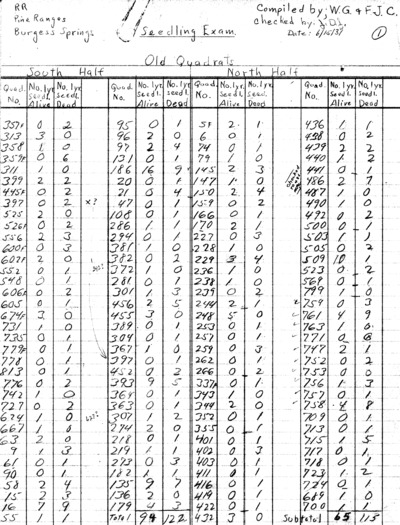 RR
Pine Ranges
Burgess Springs
Seedling Exam.
Compiled by: W.G. & F.J.C.
checked by:
Date:
1
Old Quadrats
South Half North Half
Quad. No. No. 1yr. Seedl. Alive No. 1yr. Seedl. Dead Quad. No. No. 1yr. Seedl. Alive No. 1yr. Seedl. Dead Quad. No. No. 1yr. seedl. Alive No. 1yr. seedl. Dead Quad. No. No. 1yr. seedl. Alive No. 1yr. seedl. Dead
0 2 95 0 1 2 1 436 1 1
313 3 0 96 2 0 6 0 1 0 2
358 1 0 97 2 4 74 0 1 439 2 2
0 6 131 0 1 79 1 0 440 1 2
311 1 0 186 16 9 145 2 3 441 0 1
399 2 2 20 0 1 147 1 0 486 2 7
0 2 21 0 4 150 2 4 487 1 0
397 0 2 47 0 1 159 0 2 490 1 0
525 2 0 108 0 1 166 0 1 492 0 2
0 2 286 1 1 170 2 1 500 0 1
556 2 3 294 0 1 227 0 3 503 1 1
0 3 381 1 0 228 1 0 505 0 2
2 0 382 0 2 229 3 4 509 1
552 0 1 372 1 0 236 1 0 523 0 2
548 0 1 281 0 1 238 1 0 569 0 1
0 2 301 1 3 239 0 2 799 1 0
605 0 1 456 2 5 244 2 1 759 0 3
3 0 455 3 0 248 5 0 761 4 9
731 1 0 389 0 1 253 0 1 763 1 0
735 0 1 304 0 1 257 0 1 771 0
0 1 367 1 0 259 0 3 747 2 1
778 0 1 397 0 1 262 0 1 752 0 2
813 0 1 452 0 2 266 0 2 753 0 0
776 0 2 393 9 5 0 1 756 1 3
742 1 0 364 0 1 343 1 0 757 0 1
727 0 2 363 0 1 344 2 0 758 4 8
624 1 0 307 1 2 352 0 1 709 0 1
667 1 0 274 2 0 355 0 1 713 0 1
63 2 0 218 0 1 401 0 1 715 1 5
9 1 3 219 1 1 402 0 3 717 0 1
61 0 1 273 0 3 403 0 1 718 0 1
90 0 1 182 1 0 411 0 1 723 1 2
58 2 4 135 9 7 416 0 1 724 0 1
15 2 3 136 2 0 419 0 1 689 1 0
16 7 9 179 4 3 422 0 1 700
55 1 1 Total 94 122 432 3 0 Subtotal 65 113